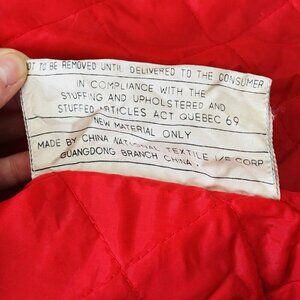 NOT TO BE REMOVED UNTIL DELIVERED TO THE CONSUMER
IN COMPLIANCE WITH THE
STUFFING AND UPHOLSTERED AND
STUFFED ARTICLES ACT QUEBEC 69
NEW MATERIAL ONLY
MADE BY CHINA NATIONAL TEXTILE I/E CORP
GUANGDONG BRANCH CHINA.